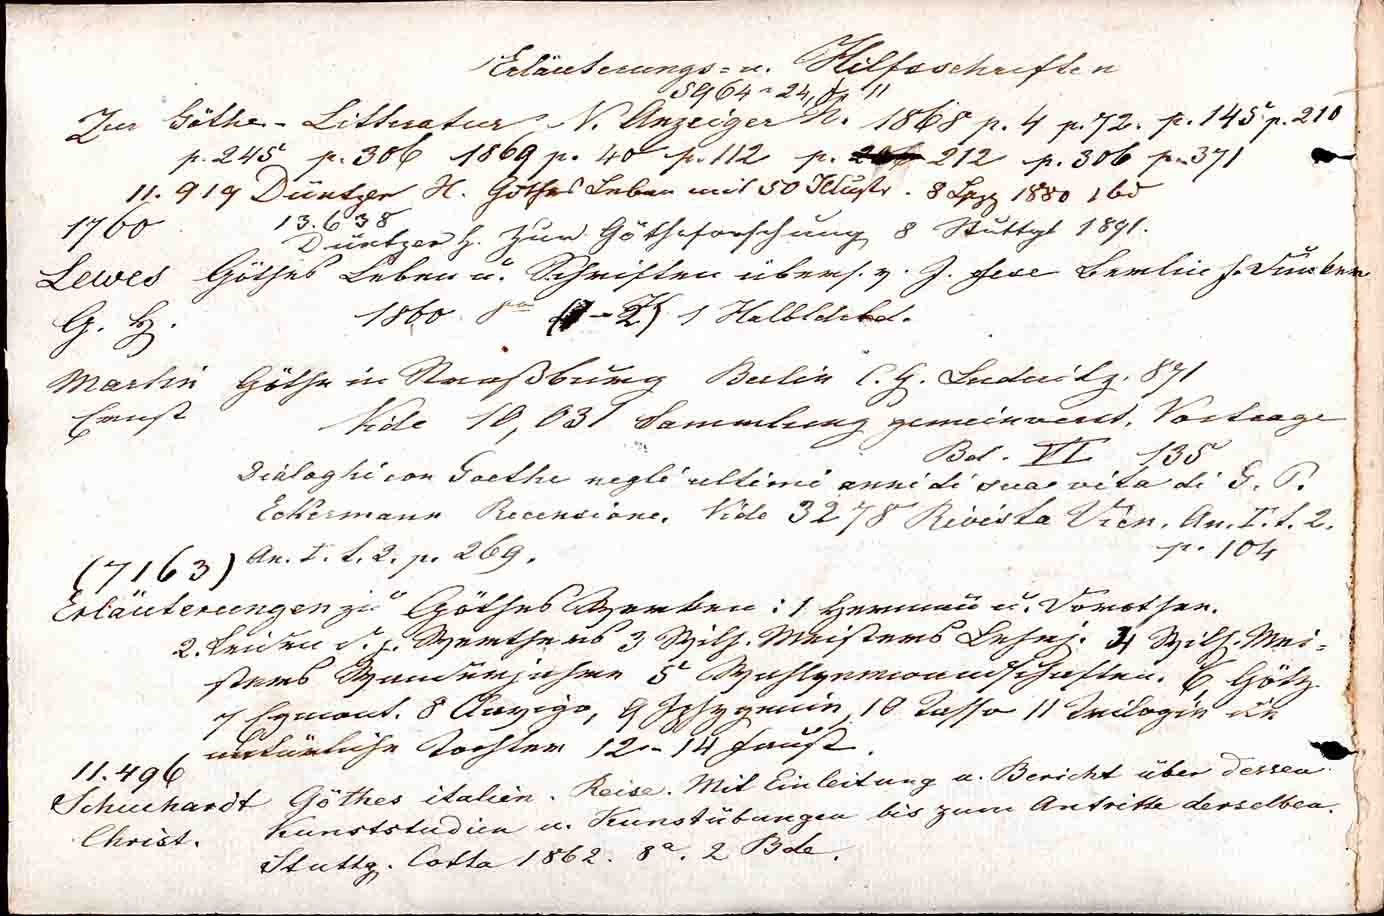 Erläuterungs- u. Hilfsschriften
5964-24, fg 11
Zur Göthe-Litteratur, N. Anzeiger R. 1868 p. 4 p. 72. p. 145 p. 210
p. 245 p. 306 1869 p. 40 p. 112 p. 212 p. 306 p. 371
11.919 Düntzer H. Göthes Leben mit 50 Illustr. 8 Lpzg 1880 1 bd
1760 13.638
Düntzer H. Zur Götheforschung 8 Stuttgt 1891.
Lewes Göthes Leben u. Schriften übers. v. J. Frese Berlin F. Duncker
G. H. 1860 8º (1-2) 1 Halbldrbd.
Martin Göthe in Straßburg Berlin C. G. Luderitz. 871
Ernst Vide 10,031 Sammlung gemeinverst. Vortrage
Bd. VI 135
Dialoghi con Goethe negli ultimi anni di sua vita di G. P.
Eckermann Recensione. Vide 3278 Rivista Vien. An. I. t. 2.
p. 104
(7163) An. I. t. 2. p. 269.
Erläuterungen zu Göthes Werken: 1 Hermann u. Dorothea.
2. Leiden d. j. Werthers 3 Wilh. Meisters Lehrj. 4 Wilh. Mei-
sters Wanderjahre 5 Wahlverwandschaften. 6 Götz
7 Egmont. 8 Clavigo, 9 Iphigenia, 10 Tasso 11 Trilogie die
natürliche Tochter 12-14 Faust.
11.496
Schuchardt Göthes italien. Reise. Mit Einleitung u. Bericht über dessen
Christ. Kunststudien u. Kunstübungen bis zum Antritte derselben.
Stuttg. Cotta 1862. 8º. 2 Bde.